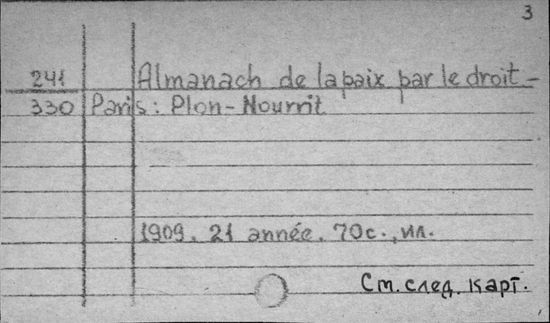 3
241 Almanach de la paix par le droit-
330 Paris: Plon-Nourrit
1909. 21 année. 70с., ил.
См. след. карт.